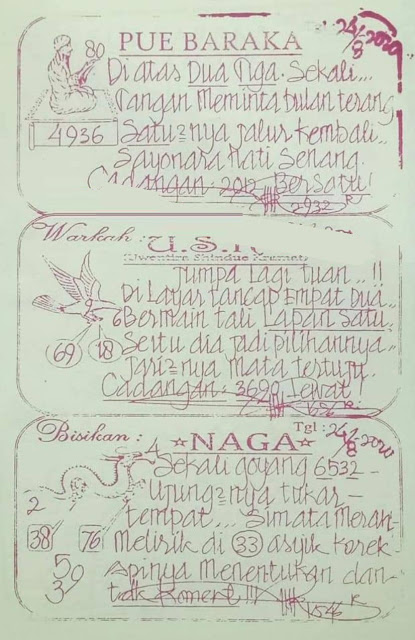 24/8 2020
PUE BARAKA
80
Diatas Dua Nga. Sekali...
Jangan Meminta bulan terang
4936
Satu2nya jalur kembali..
Sayonara Hati Senang.
Cadangan 2012 Bersatu!
2932 R
Warkah : U.S.K
(Uwentira Shindue Kramat)
Jumpa Lagi tuan..!!
Di Layar tancap Empat Dua..
6 Bermain tali Lapan Satu.
69 18
Seitu dia jadi pilihannya..
Jari2nya Mata tertuju.
Cadangan. 3690 Lewat!
Bisikan : ☆NAGA☆
Tgl : 24/8-2020
4
Sekali goyang 6532 -
Ujung2nya tukar -
2
tempat... Simata Merah-
38 76
Melirik di 33 asyik Korek
50
Apinya Menentukan dan-
3
tdk Koment !!!
1546 R